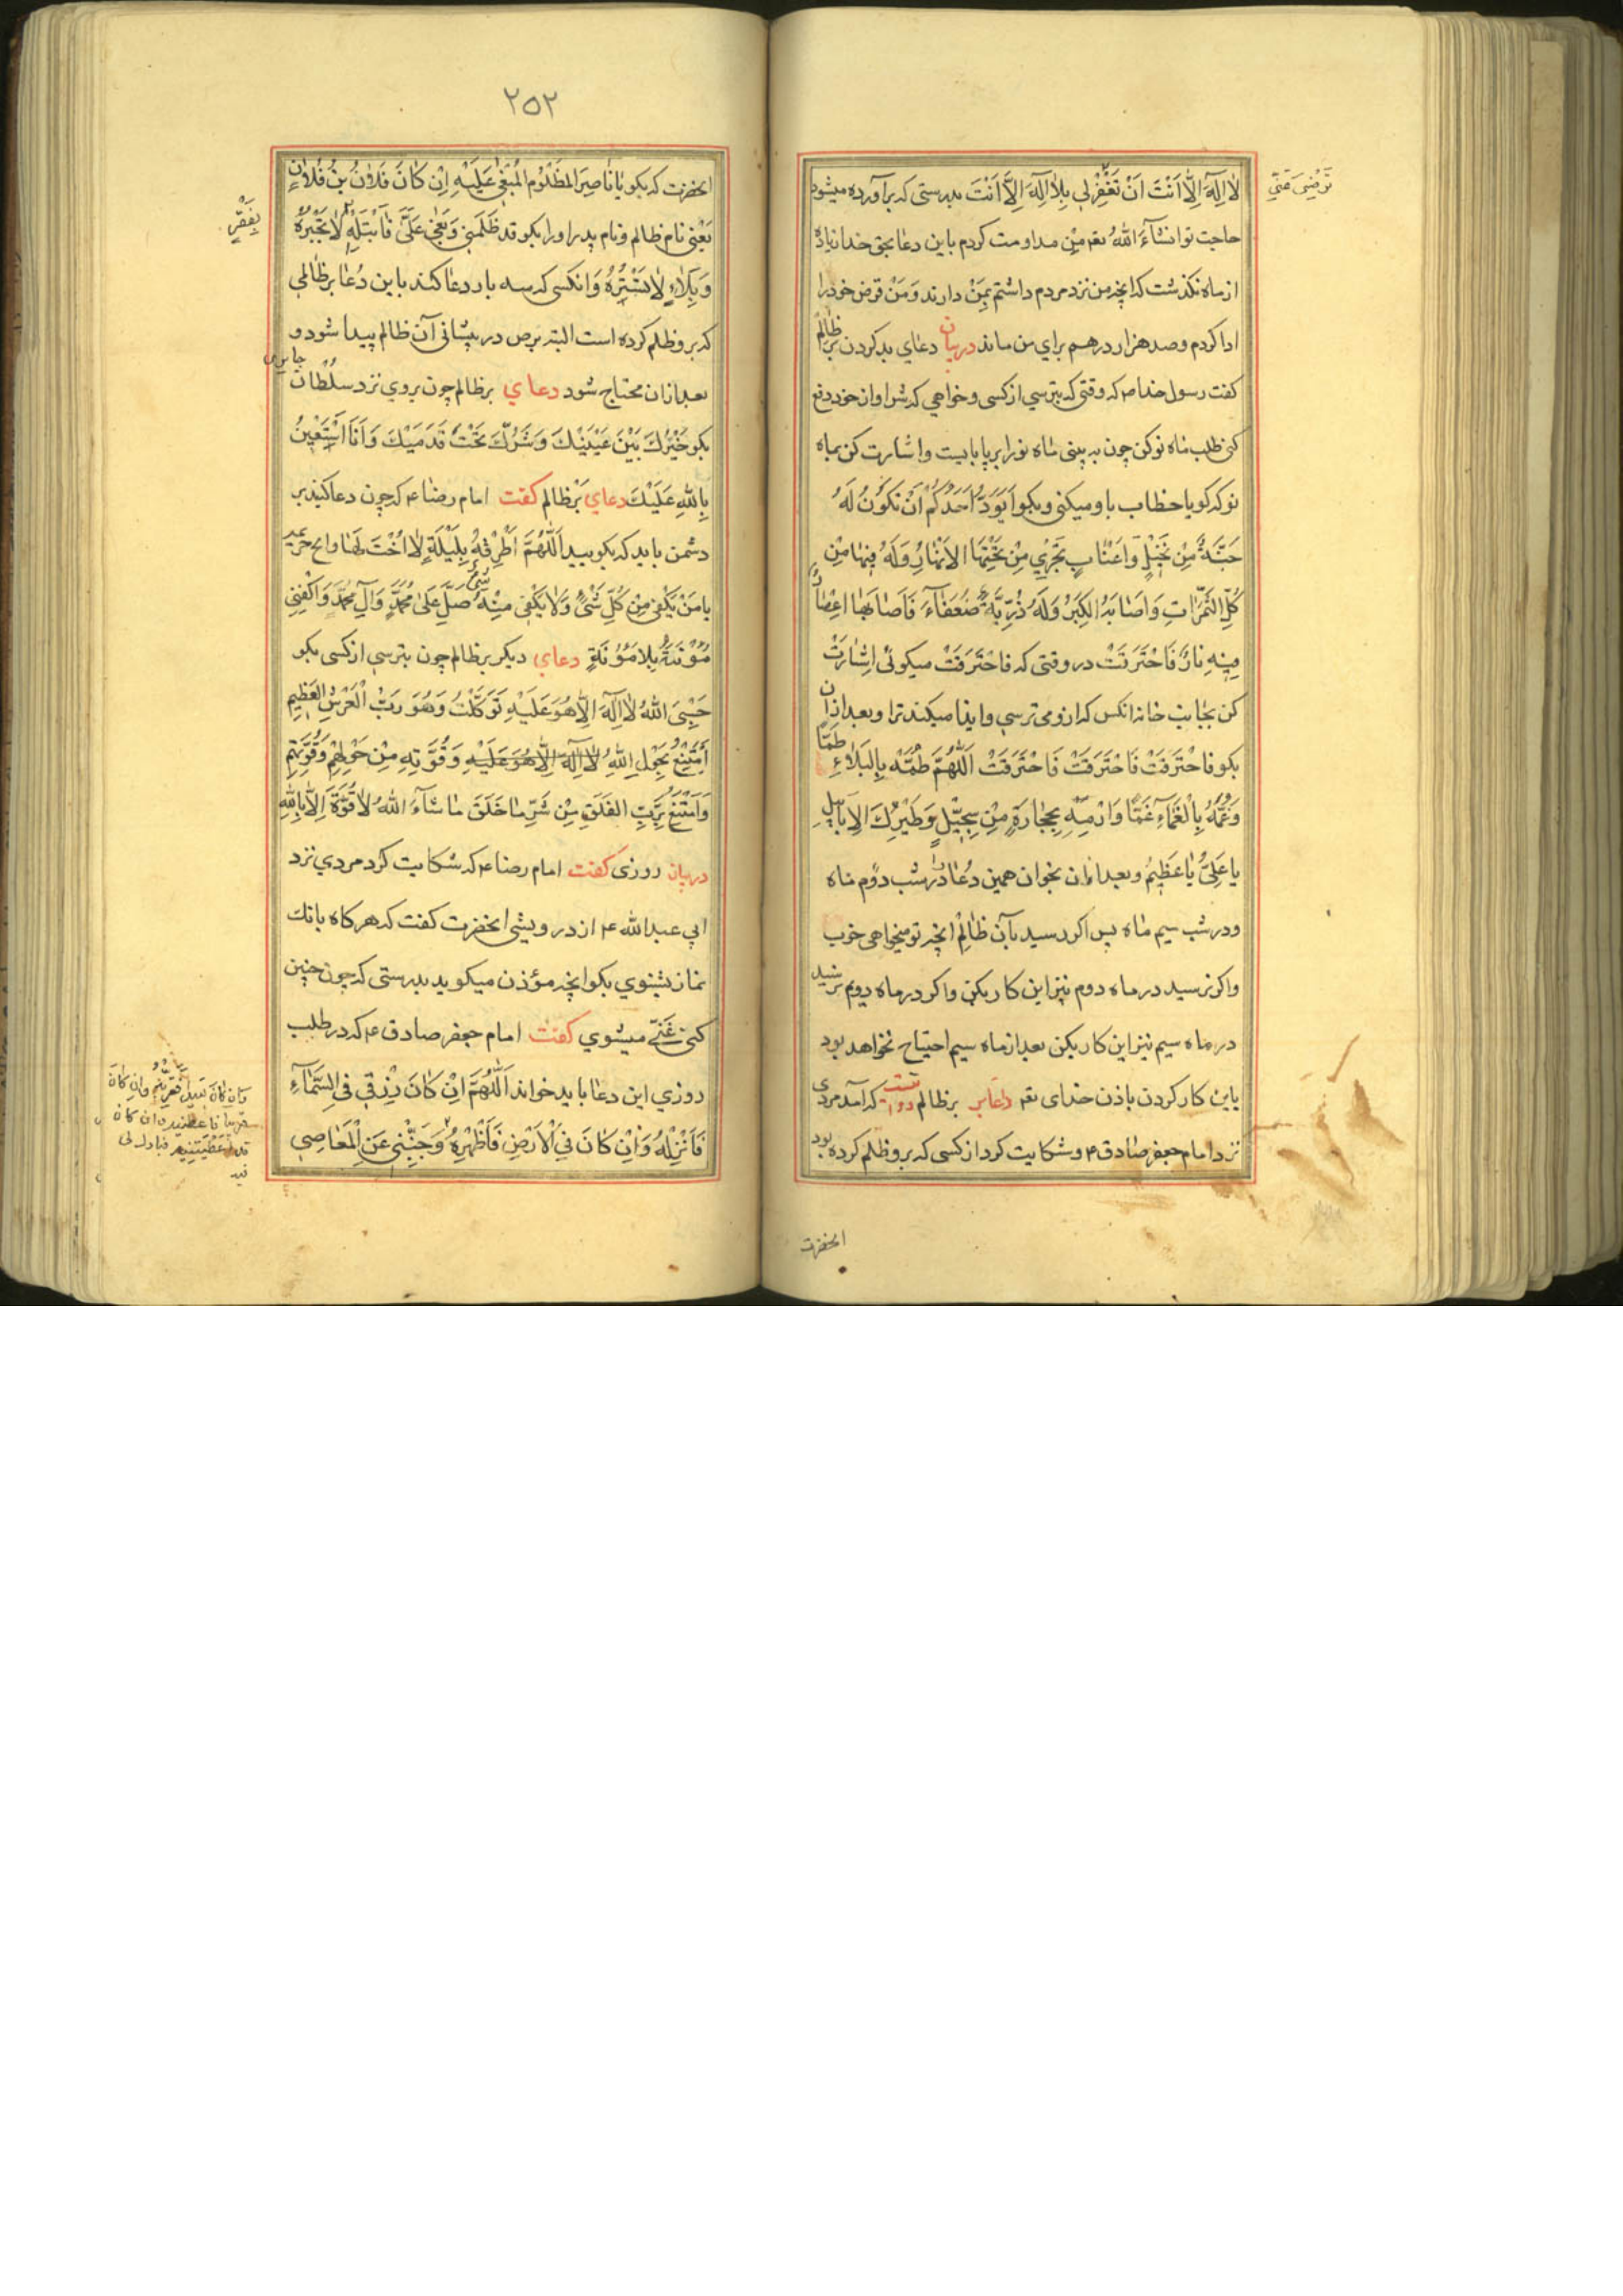 لا اِلٰهَ اِلّا اَنْتَ اَنْ تَغْفِرْلي بِلا اِلٰهَ اِلّا اَنْتَ بدرستی که برآورده میشود
ترضی عنی
حاجت تو انشآءَ اللهُ تعه مِن مداومت کردم باین دعا بحق خدا زیاده
از ماه نکذشت که انچه من نزد مردم داشتم بمَنْ دادند وَمَنْ قرض خود را
ادا کردم وصد هزار درهم برای من ماند در بیان دعای بد کردن بر ظالم
کفت رسول خدا ص که وقتی که بترسي از کسی و خواهي که شر او از خود دفع
کنی طلب ماه نو کن چون به بینی ماه نو را بر پا بایست و اشارت کن بماه
نو که کویا خطاب باو میکنی و بکو اَيَوَدُّ اَحَدُكُمْ اَنْ تَكُونَ لَهُ
جَنَّةٌ مِنْ نَخِيْلٍ وَاَعْنابٍ تَجْرِي مِنْ تَحْتِهَا الاَنْهارُ وَلَهُ فِيها مِنْ
كُلِّ الثَّمَراتِ وَاَصابَهُ الكِبَرُ وَلَهُ ذُرِّيَّةٌ ضُعَفآءَ فَاَصابَها اِعْصارٌ
فِيهِ نارٌ فَاحْتَرَقَتْ در وقتی که فاحْتَرَقَتْ میکوئی اِشارَتْ
کن بجانب خانه انکس که ازو می ترسي و ایذا میکند ترا و بعد ازان
بکو فاحْتَرَقَتْ فَاحْتَرَقَتْ فَاحْتَرَقَتْ اَللّٰهُمَّ طُمَّهُ بِالبَلاءِ طَمّاً
وَغُمَّهُ بِالْغَمآءِ غَمّاً وَارْمِهِ بِحِجارَةٍ مِنْ سِجِّيْلٍ وَطَيْرِكَ الاَبابِيلِ
يا عَلِيُّ يا عَظِيْمُ و بعد ازان بخوان همین دُعا در شب دوّم ماه
و در شب سیم ماه پس اکر رسید بآن ظالِم انچه تو میخواهی خوب
و اکر نرسید در ماه دوم نیز این کار بکن و اکر در ماه دویم نرسید
در ماه سیم نیز این کار بکن بعد از ماه سیم احتیاج نخواهد بود
باین کار کردن باذن خدای تعه دعای بر ظالم که آمد مردی
نزد امام جعفر صادق ع و شکایت کرد از کسی که برو ظلم کرده بود
انحضرت
٢٥٢
انحضرت که بکو يا ناصِرَ المَظْلُوْم المَبْغِيّ عَلَيْهِ اِن كانَ فُلانُ بْنُ فُلانٍ
یَعْنی نام ظالم و نام پدر او را بکو قد ظَلَمَني وَبَغٰی عَلَيَّ فَابْتَلِهِ لا تَجْبُرُهُ
بِفَقْرٍ
وَبَلاءٍ لا تَسْتُرُهُ و انکسی که سه بار دعا کند باین دُعا بر ظالمی
که برو ظلم کرده است البته برص در پیشانی آن ظالم پیدا شود و
بعد ازان محتاج شود دعای بر ظالم چون بروي نزد سُلْطان جابر
بکو خَيْرُكَ بَيْنَ عَيْنَيْكَ وَشَرُّكَ تَحْتَ قَدَمَيْكَ وَاَنَا اَسْتَعِيْنُ
بِاللهِ عَلَيْكَ دعاي بَرْ ظالم کفت امام رضا ع که چون دعا کنید بر
دشمن باید که بکویید اَللّٰهُمَّ اَطْرِقْهُ بِلَيْلَةٍ لا اُخْتَ لَها وابح حریمه
يا مَنْ يَكْفِي مِن كُلِّ شَيْءٍ وَلا يَكْفِي مِنْهُ شَيْءٌ صَلِّ عَلیٰ مُحَمَّدٍ وَآلِ مُحَمَّدٍ وَاكْفِنِي
مَؤُنَةَ بِلا مَؤُنَةٍ دعاي دیکر بر ظالم چون بترسي از کسی بکو
حَسْبِيَ اللهُ لا اِلٰهَ اِلّا هُوَ عَلَيْهِ تَوَكَّلْتُ وَهُوَ رَبُّ الْعَرْشِ العَظِيْمِ
اَمْتَنِعُ بِحَوْلِ اللهِ لا اِلٰهَ اِلّا هُوَ عَلَيْهِ وَقُوَّتِهِ مِنْ حَوْلِهِمْ وَقُوَّتِهِمْ
وَاَمْتَنِعُ بِرَبِّ الفَلَقِ مِنْ شَرِّ ما خَلَقَ ما شآءَ اللهُ لا قُوَّةَ اِلّا بِاللهِ
در بیان روزی کفت امام رضا ع که شکایت کرد مردي نزد
ابي عبد الله ع از درویشی انحضرت کفت که هر کاه بانك
نماز بشنوي بکو انچه مؤذن میکوید بدرستی که چون چنین
کنی غَنی میشوي کفت امام جعفر صادق ع که در طلب
روزي این دعا باید خواند اَللّٰهُمَّ اِنْ كانَ رِزْقِي فِي السَّمآءِ
فَاَنْزِلْهُ وَاِنْ كانَ فِي الْاَرْضِ فَاَظْهِرْهُ وَجَنِّبْنِي عَنِ الْمَعاصِي
وَاِن كانَ بَعيداً فَقَرِّبْهُ وَاِن كانَ
قریبا فاعطنیه و ان کان
قد اَعْطَيْتَنِيهِ فبارك لی
فیه